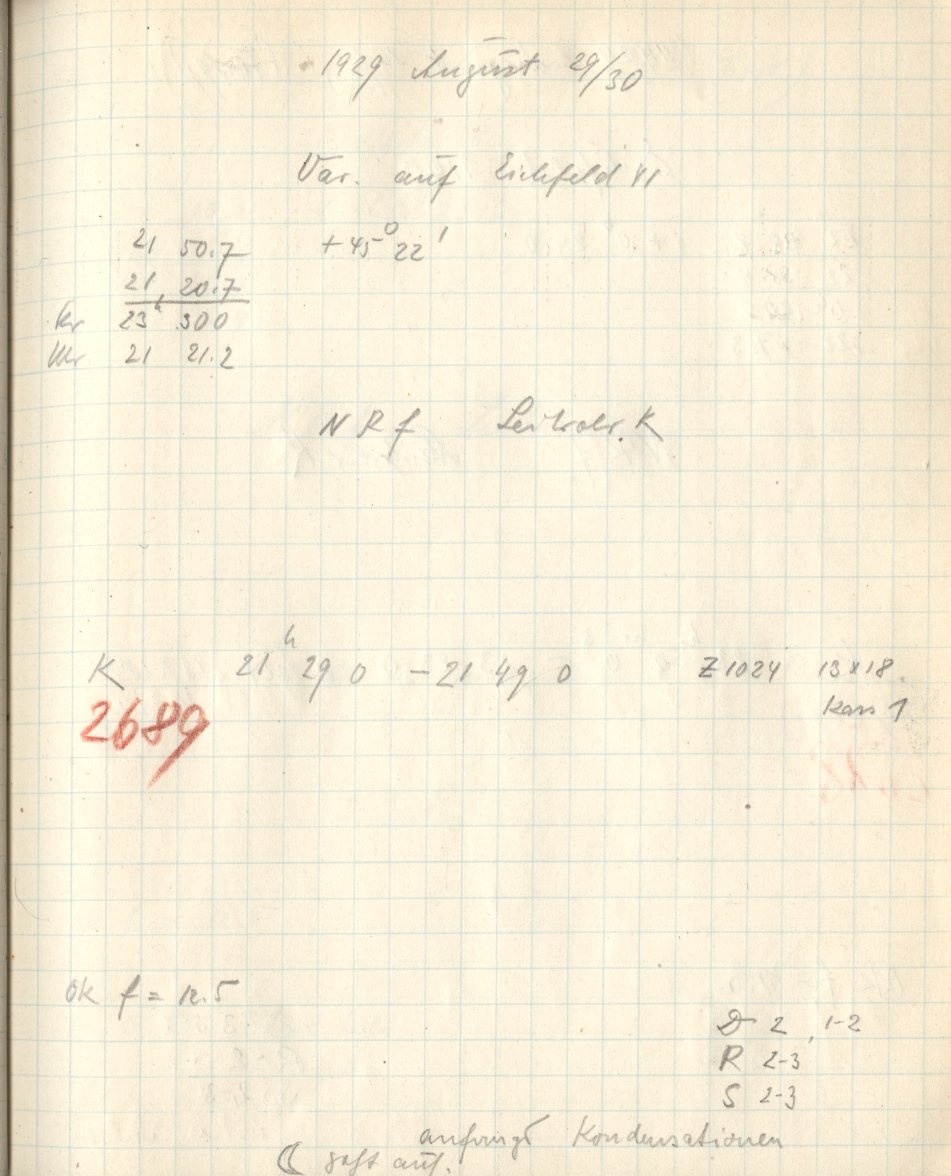 1929 August 29/30
Var. auf Eichfeld VI
21 50.7 +45° 22'
21 20.7
23h 30 0
Uhr 21 21.2
N R f Leitrohr K
K 21h 29 0 – 21 49 0 Z 1024 13x18.
Kass 1
2689
Ok f = 12.5
D 2, 1-2
R 2-3
S 2-3
anfangs Kondensationen
☾ geht auf.